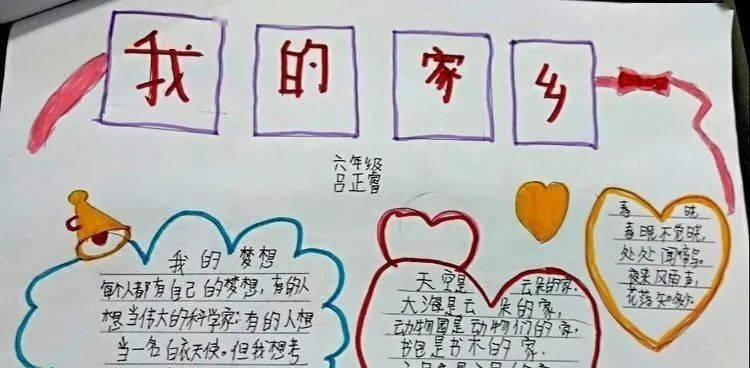 我的家乡
六年级
吕正睿
我的梦想
每个人都有自己的梦想,有的人
想当伟大的科学家;有的人想
当一名白衣天使。但我想考
天空是 云朵的家.
大海是云 朵的家,
动物园是动物们的家,
书包是书本的家.
春 晓
春眠不觉晓,
处处闻啼鸟。
夜来风雨声,
花落知多少